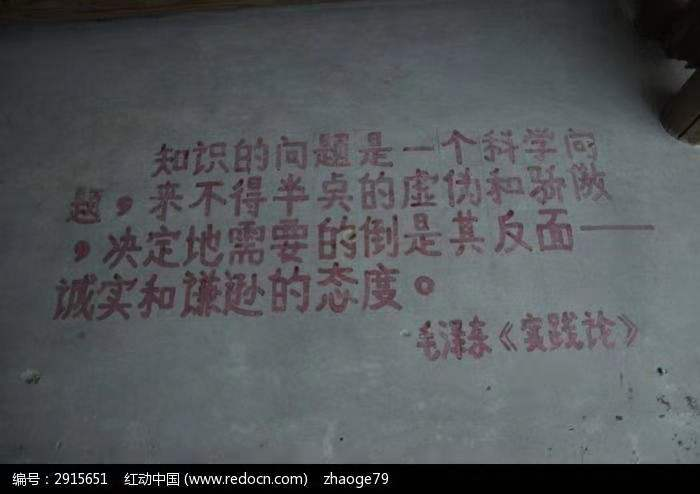 知识的问题是一个科学问
题，来不得半点的虚伪和骄傲
，决定地需要的倒是其反面——
诚实和谦逊的态度。
毛泽东《实践论》
编号：2915651 红动中国 (www.redocn.com) zhaoge79